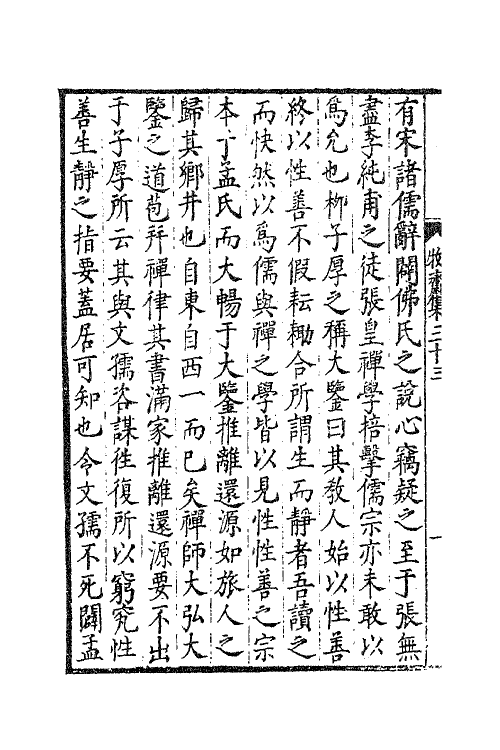 有宋諸儒辭闢佛氏之說心竊疑之至于張無
盡李純甫之徒張皇禪學掊擊儒宗亦未敢以
爲允也柳子厚之稱大鑒曰其敎人始以性善
終以性善不假耘耡合所謂生而靜者吾讀之
而快然以爲儒與禪之學皆以見性性善之宗
本于孟氏而大暢于大鑒推離還源如旅人之
歸其鄉井也自東自西一而已矣禪師大弘大
鑒之道苞幷禪律其書滿家推離還源要不出
于子厚所云其與文孺咨謀徃復所以窮究性
善生靜之指要蓋居可知也今文孺不死闢孟
牧齋集三十三
一